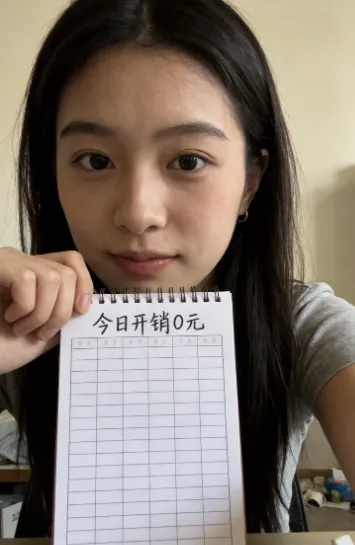 今日开销0元